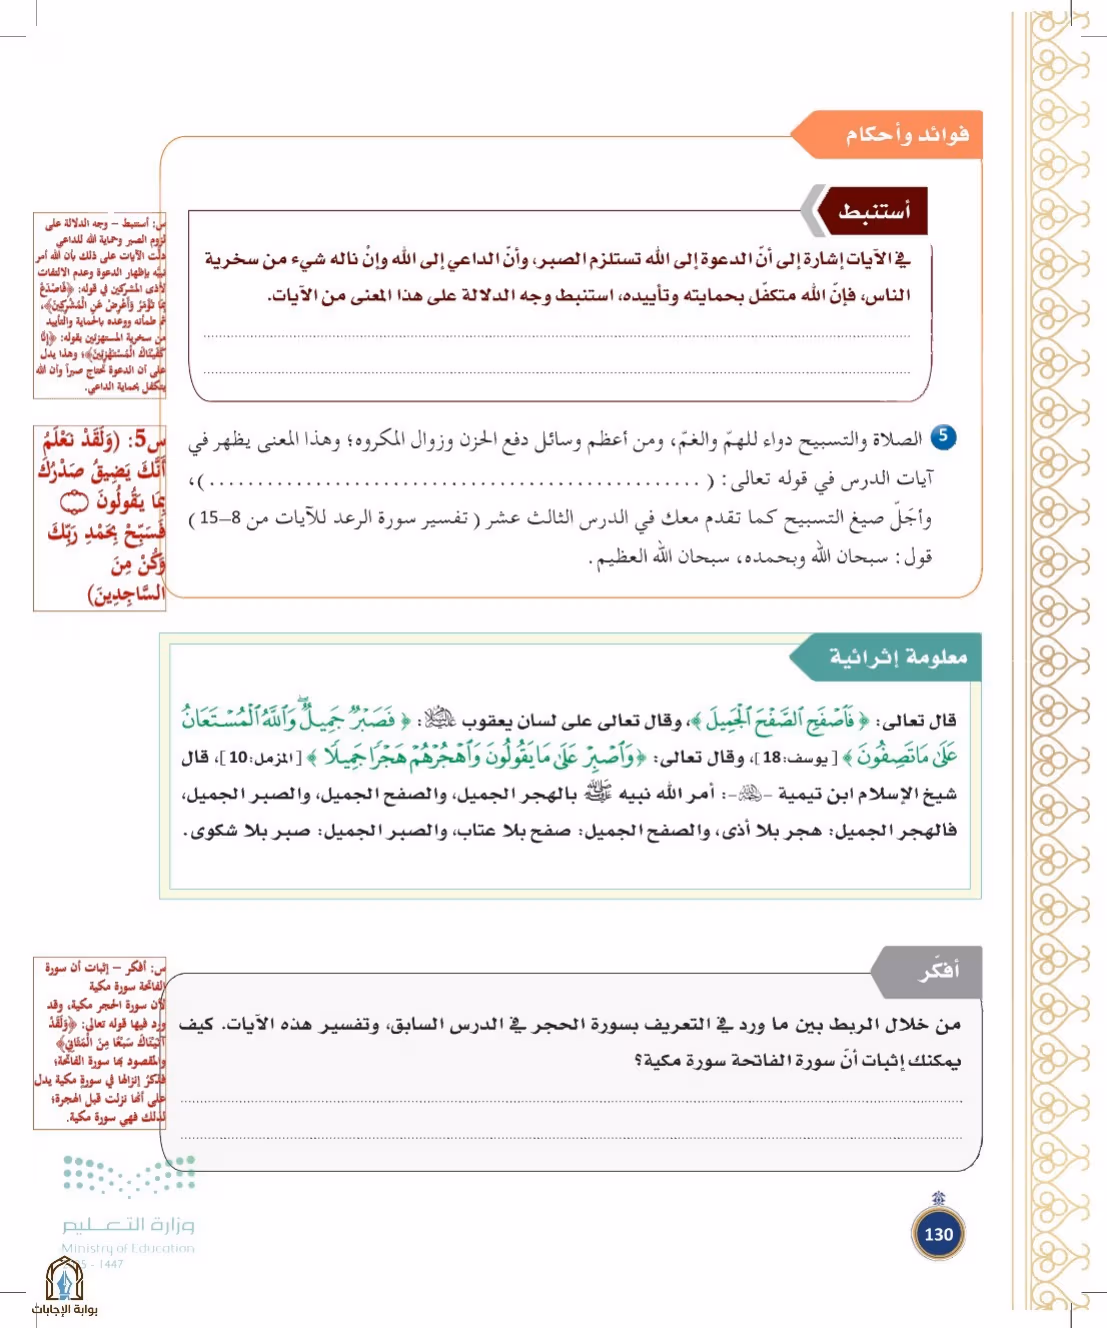 فوائد وأحكام
أستنبط
في الآيات إشارة إلى أنّ الدعوة إلى الله تستلزم الصبر، وأنّ الداعي إلى الله وإنْ ناله شيء من سخرية
الناس، فإنّ الله متكفّل بحمايته وتأييده، استنبط وجه الدلالة على هذا المعنى من الآيات.
س: أستنبط – وجه الدلالة على
لزوم الصبر وحماية الله للداعي
دلّت الآيات على ذلك بأن الله أمر
نبيّه بإظهار الدعوة وعدم الالتفات
لأذى المشركين في قوله: ﴿فَاصْدَعْ
بِمَا تُؤْمَرُ وَأَعْرِضْ عَنِ الْمُشْرِكِينَ﴾،
ثم طمأنه ووعده بالحماية والتأييد
من سخرية المستهزئين بقوله: ﴿إِنَّا
كَفَيْنَاكَ الْمُسْتَهْزِئِينَ﴾؛ وهذا يدل
على أن الدعوة تحتاج صبراً وأن الله
يتكفل بحماية الداعي.
5 الصلاة والتسبيح دواء للهمّ والغمّ، ومن أعظم وسائل دفع الحزن وزوال المكروه؛ وهذا المعنى يظهر في
آيات الدرس في قوله تعالى: ( .................................................)،
وأجَلّ صيغ التسبيح كما تقدم معك في الدرس الثالث عشر ( تفسير سورة الرعد للآيات من 8–15)
قول: سبحان الله وبحمده، سبحان الله العظيم.
س5: (وَلَقَدْ نَعْلَمُ
أَنَّكَ يَضِيقُ صَدْرُكَ
بِمَا يَقُولُونَ
فَسَبِّحْ بِحَمْدِ رَبِّكَ
وَكُنْ مِنَ
السَّاجِدِينَ)
معلومة إثرائية
قال تعالى: ﴿ فَٱصْفَحِ ٱلصَّفْحَ ٱلْجَمِيلَ ﴾، وقال تعالى على لسان يعقوب عليه السلام: ﴿ فَصَبْرٌ جَمِيلٌ وَٱللَّهُ ٱلْمُسْتَعَانُ
عَلَىٰ مَا تَصِفُونَ ﴾ [يوسف:18]، وقال تعالى: ﴿وَٱصْبِرْ عَلَىٰ مَا يَقُولُونَ وَٱهْجُرْهُمْ هَجْرًا جَمِيلًا ﴾ [المزمل:10]، قال
شيخ الإسلام ابن تيمية –رحمه الله–: أمر الله نبيه ﷺ بالهجر الجميل، والصفح الجميل، والصبر الجميل،
فالهجر الجميل: هجر بلا أذى، والصفح الجميل: صفح بلا عتاب، والصبر الجميل: صبر بلا شكوى.
أفكّر
من خلال الربط بين ما ورد في التعريف بسورة الحجر في الدرس السابق، وتفسير هذه الآيات. كيف
يمكنك إثبات أنّ سورة الفاتحة سورة مكية؟
س: أفكر – إثبات أن سورة
الفاتحة سورة مكية
لأن سورة الحجر مكية، وقد
ورد فيها قوله تعالى: ﴿وَلَقَدْ
آتَيْنَاكَ سَبْعًا مِنَ الْمَثَانِي﴾
والمقصود بها سورة الفاتحة؛
فذكرُ إنزالها في سورةٍ مكية يدل
على أنها نزلت قبل الهجرة؛
لذلك فهي سورة مكية.
وزارة التعليم
Ministry of Education
5 - 1447
130
بوابة الإجابات